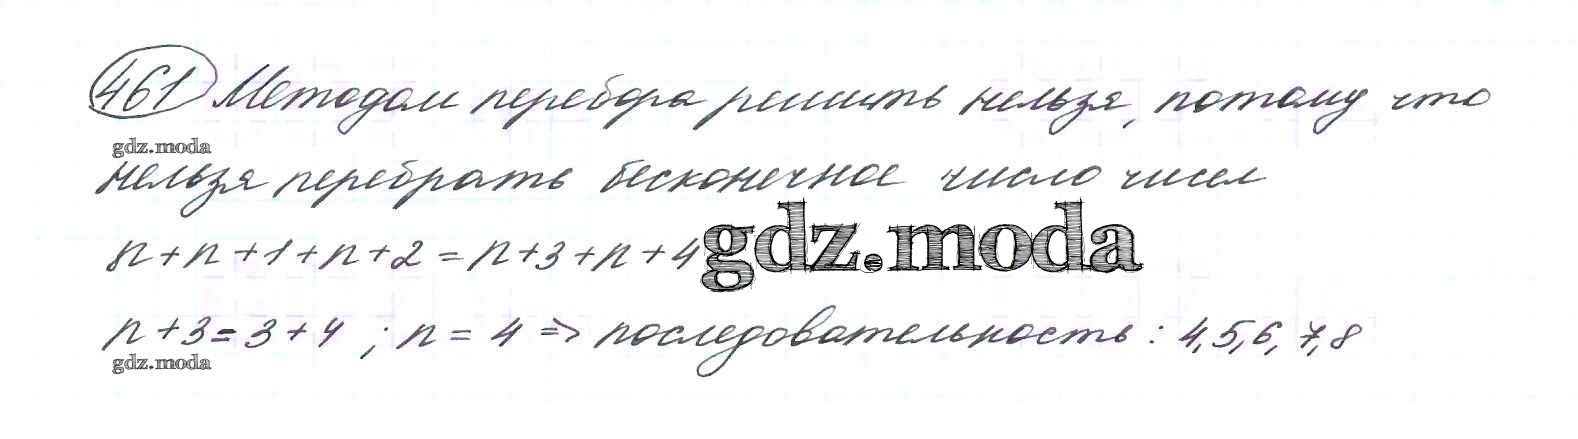 461 Методом перебора решить нельзя, потому что
gdz.moda
нельзя перебрать бесконечное число чисел
n+n+1+n+2=n+3+n+4
gdz.moda
n+3=3+4 ; n=4 => последовательность: 4,5,6,7,8
gdz.moda